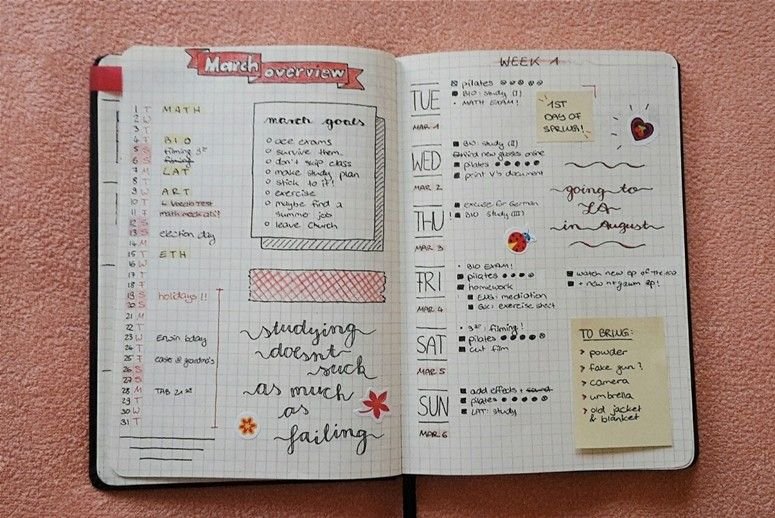 March overview
1 T MATH
2 W
3 T
4 F BIO
5 S filming 3st
6 S filming
7 M LAT
8 T
9 W ART
10 T
11 F
12 S
13 S election day
14 M
15 T ETH
16 W
17 T
18 F
19 S holidays!!
20 S
21 M
22 T
23 W Erwin bday
24 T
25 F
26 S
27 S
28 M TAB 21st
29 T
30 W
31 T
march goals
ace exams
survive them.
don't skip class
make study plan
stick to it!
exercise
maybe find a
summer job
leave church
studying
doesnt
suck
as much
as
failing
WEEK 1
TUE
MAR 1
pilates
BIO: study (I)
MATH EXAM!
1ST
DAY OF
SPRING!
WED
MAR 2
BIO: study (II)
find new glasses online
pilates
print V's document
going to
LA
in August
THU
MAR 3
! excuse for German
BIO study (III)
FRI
MAR 4
BIO EXAM!
pilates
homework
ENG: mediation
exercise sheet
watch new ep of the 100
+ new ep!
SAT
MAR 5
3rd filming!
pilates
cut film
SUN
MAR 6
add effects + sound
pilates
LAT: study
TO BRING:
> powder
> fake gun?
> camera
> umbrella
> old jacket
& blanket